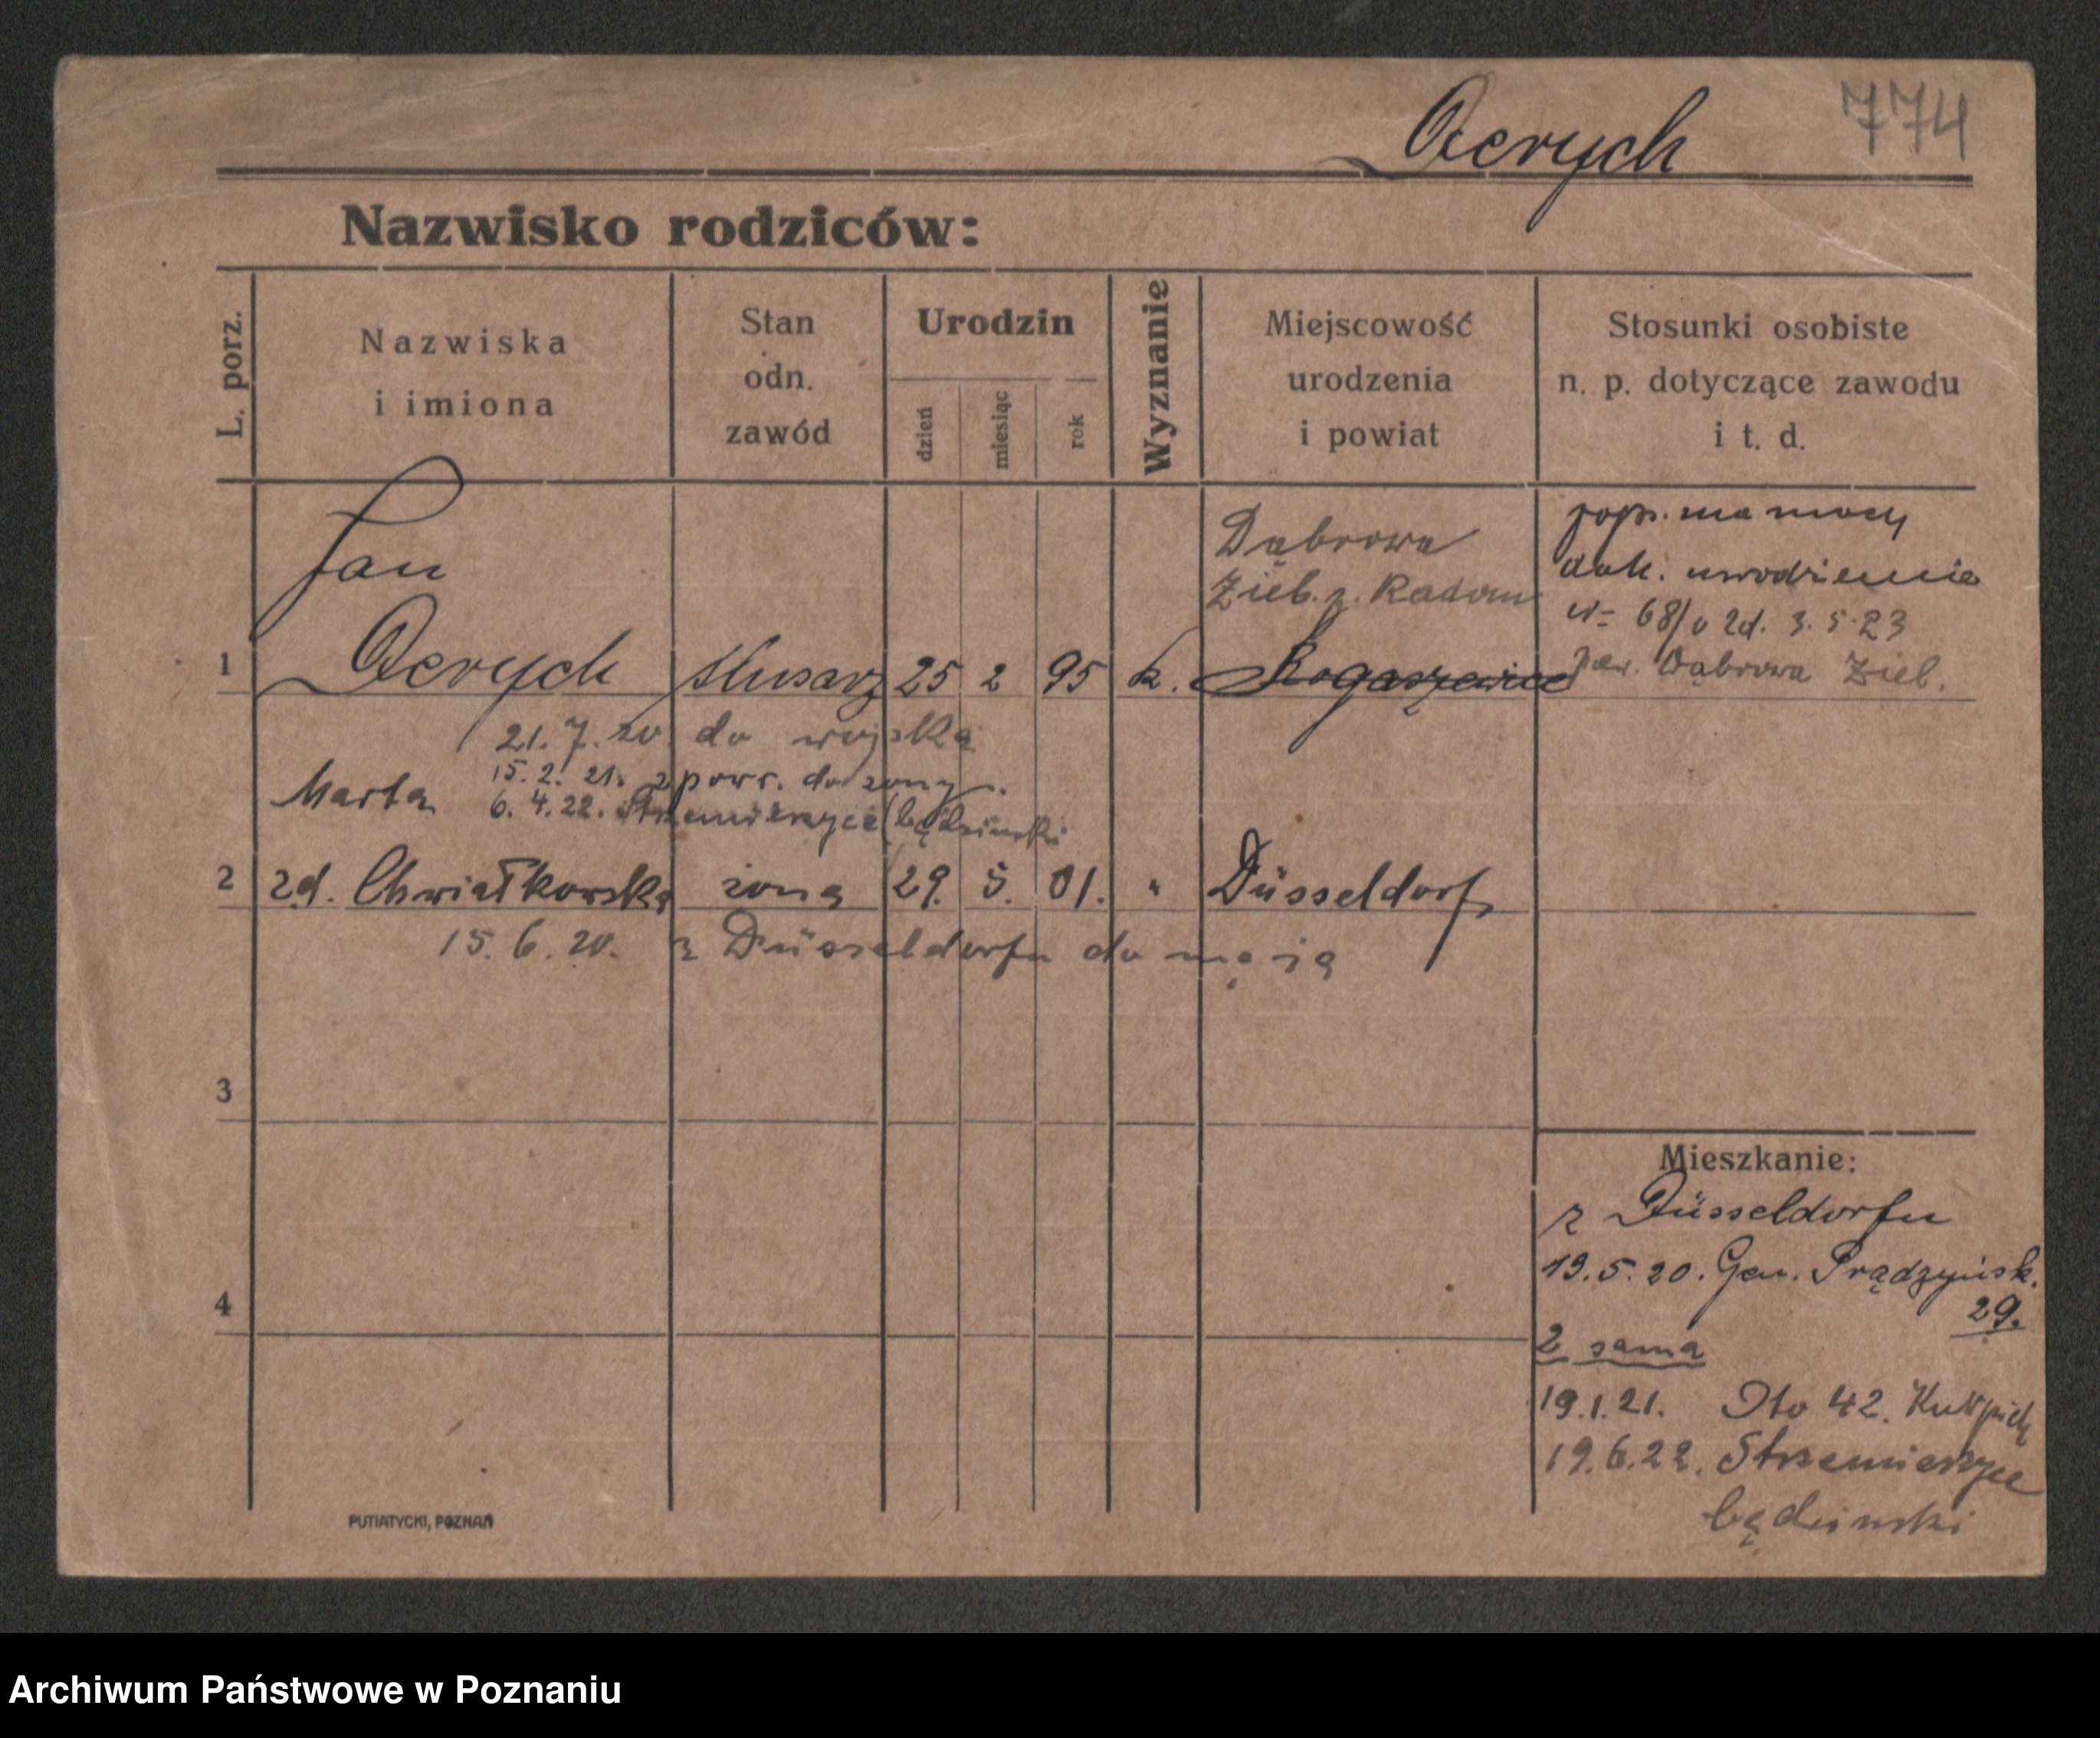 774
Acrych
Nazwisko rodziców:
L. porz.
Nazwiska
i imiona
Stan
odn.
zawód
Urodzin
dzień
miesiąc
rok
Wyznanie
Miejscowość
urodzenia
i powiat
Stosunki osobiste
n. p. dotyczące zawodu
i t. d.
Jan
1 Acrych ślusarz 25 2 95 k. Rogaszewice
Dąbrowa
Zieb. z. Radom
pop. na mocy
dok. urodzienie
nr 68/ 3.5.23
par. Dąbrowa Zieb.
21.7.20. do wojska
15.2.21. z powr. do żony.
Marta 6.4.22. Strzemieszyce będzinski
2 zd. Chwiałkowska żona 29. 5. 01. " Düsseldorf
15.6.20. z Düsseldorfu do męża
3
4
Mieszkanie:
z Düsseldorfu
19.5.20. Gen. Prądzyńsk.
29.
2 sama
19.1.21. 42.
19.6.22. Strzemieszyce
będzinski
PUTIATYCKI, POZNAŃ
Archiwum Państwowe w Poznaniu